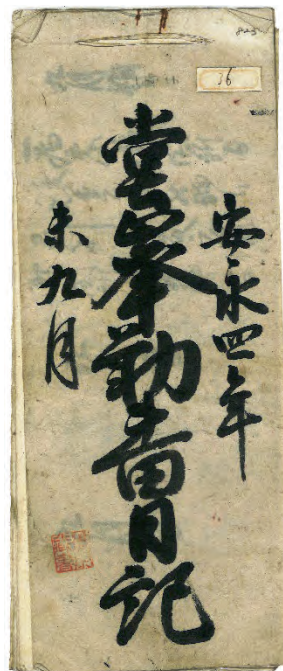 安永四年
當峯勤番日記
未九月